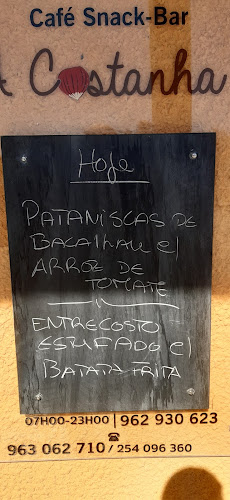 Café Snack-Bar
A Castanha
Hoje
PATANISCAS DE
BACALHAU c/
ARROZ DE
TOMATE
ENTRECOSTO
ESTUFADO c/
BATATA FRITA
07H00-23H00 | 962 930 623
963 062 710 / 254 096 360